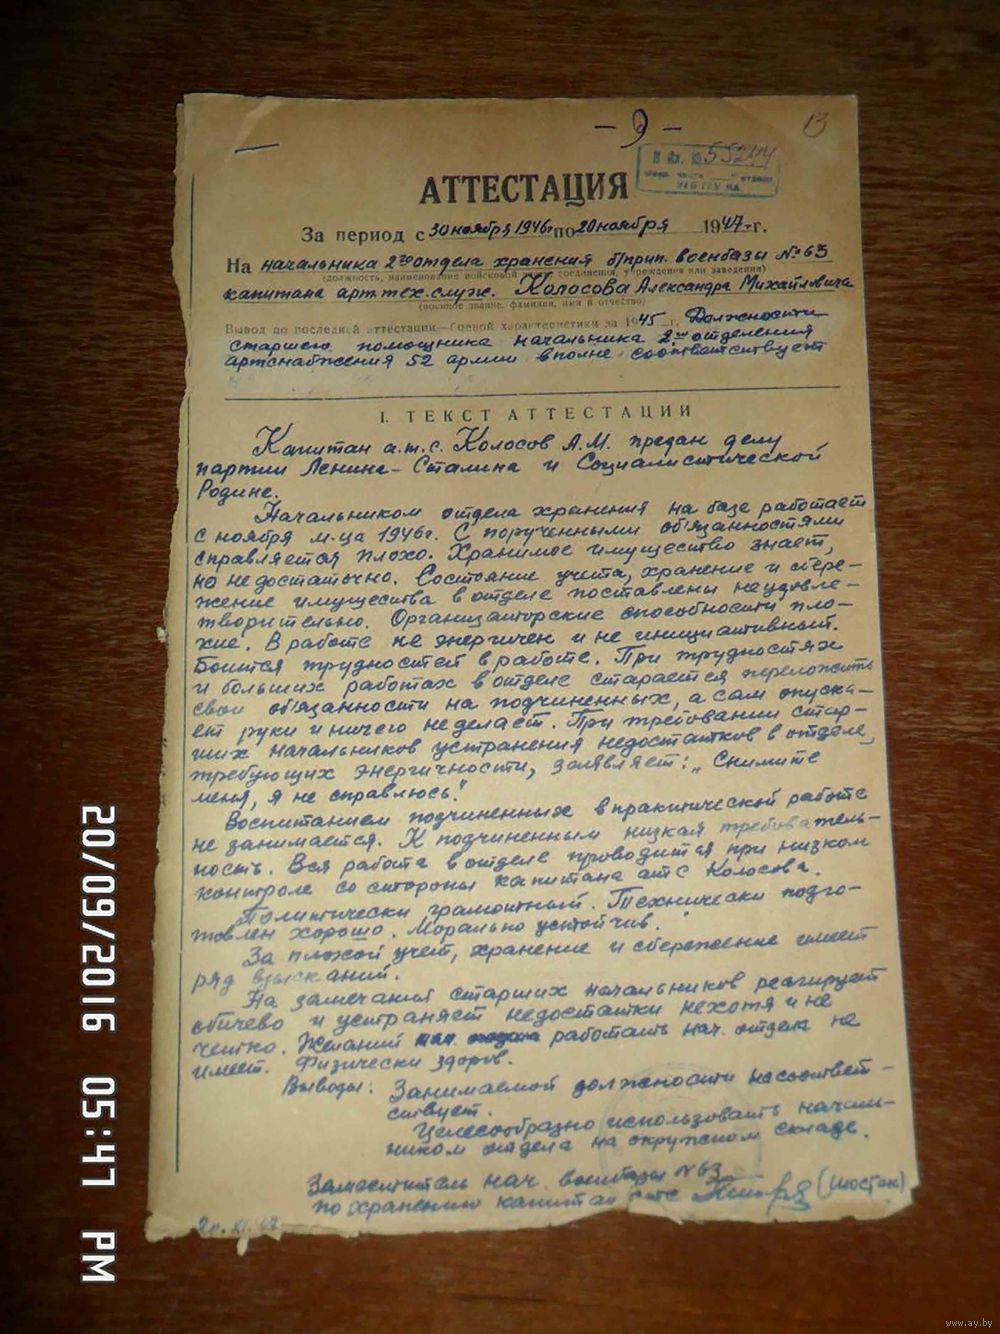 - 9 -
13
В вх. № 55244
АТТЕСТАЦИЯ
За период с 30 ноября 1946г по 20 ноября 1947г.
На начальника 2го отдела хранения б/прип. военбазы № 63
(должность, наименование войсковой части, соединения, учреждения или заведения)
капитана арт.тех.служ. Колосова Александра Михайловича
(военное звание, фамилия, имя и отчество)
Вывод по последней аттестации—боевой характеристики за 1945 г. Должности
старшего помощника начальника 2го отделения
артснабжения 52 армии вполне соответствует
I. ТЕКСТ АТТЕСТАЦИИ
Капитан а.т.с. Колосов А.М. предан делу
партии Ленина-Сталина и Социалистической
Родине.
Начальником отдела хранения на базе работает
с ноября м-ца 1946г. С порученными обязанностями
справляется плохо. Хранимое имущество знает,
но недостаточно. Состояние учета, хранение и сбере-
жение имущества в отделе поставлены неудовле-
творительно. Организаторские способности пло-
хие. В работе не энергичен и не инициативный.
Боится трудностей в работе. При трудностях
и больших работах в отделе старается переложить
свои обязанности на подчиненных, а сам опуска-
ет руки и ничего не делает. При требовании стар-
ших начальников устранения недостатков в отделе,
требующих энергичности, заявляет: „Снимите
меня, я не справлюсь."
Воспитанием подчиненных в практической работе
не занимается. К подчиненным низкая требователь-
ность. Вся работа в отделе проводится при низком
контроле со стороны капитана атс Колосова.
Политически грамотный. Технически подго-
товлен хорошо. Морально устойчив.
За плохой учет, хранение и сбережение имеет
ряд взысканий.
На замечания старших начальников реагирует
обичево и устраняет недостатки нехотя и не
четко. Желаний работать нач. отдела не
имеет. Физически здоров.
Выводы: Занимаемой должности несоответ-
ствует.
Целесообразно использовать началь-
ником отдела на окружном складе.
Заместитель нач. военбазы №63
по хранению капитан атс (Шостак)
20.XI.47
20/09/2016 05:47 PM
www.ay.by